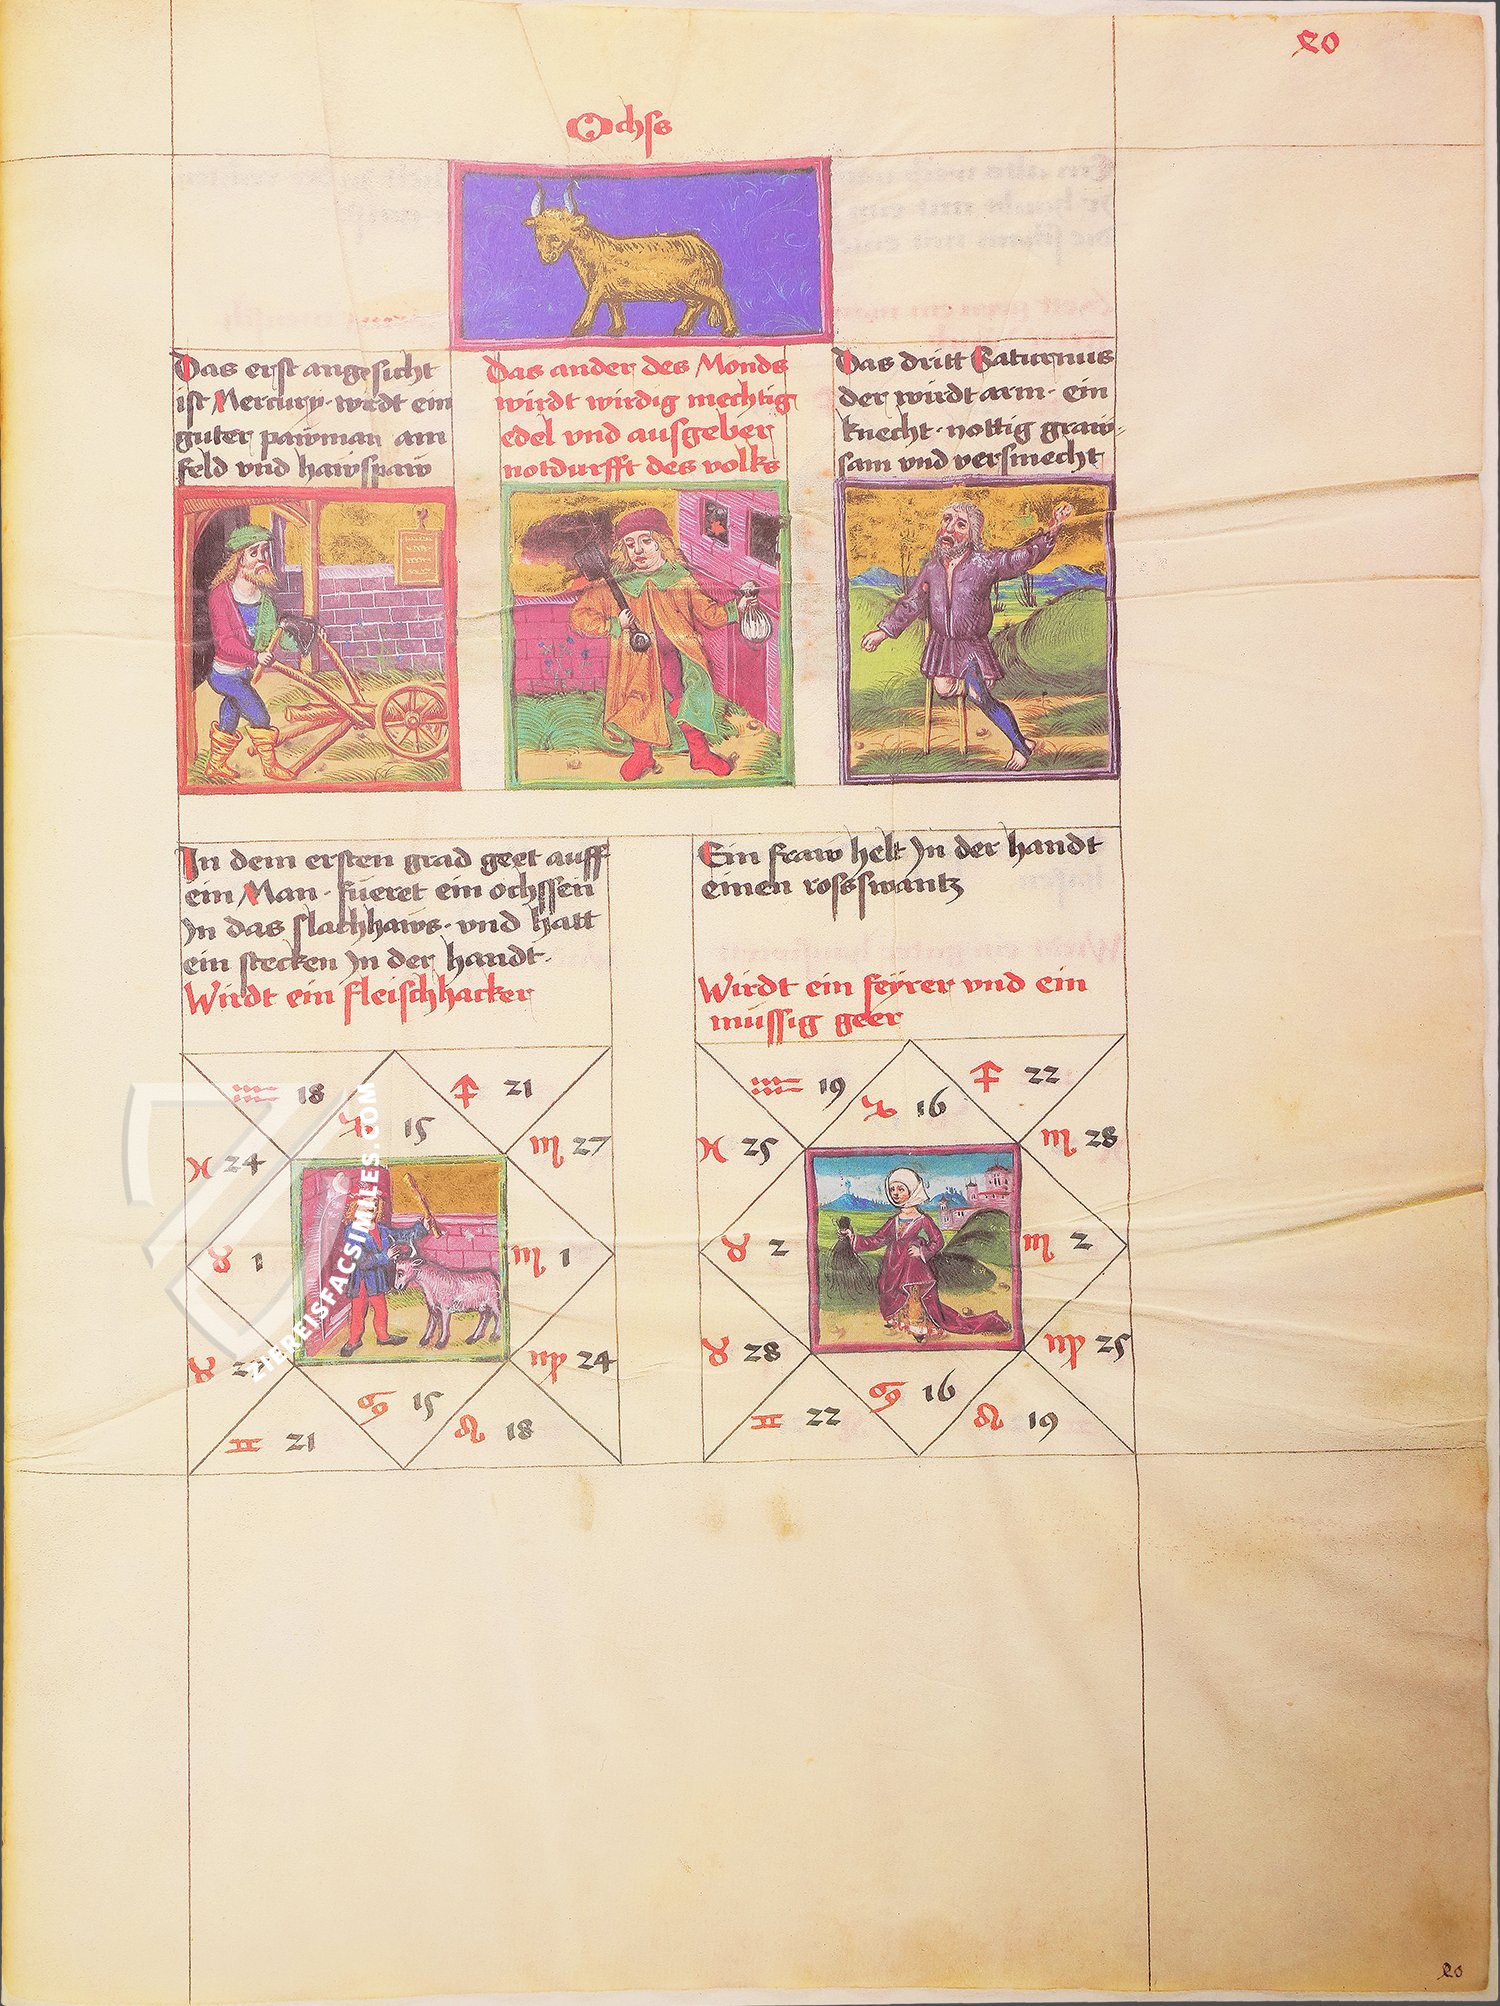 20
Ochs
Das erst angesicht
ist Mercury · wirdt ein
guter pawman am
feld vnd hawspaw
Das ander des Monds
wirdt wirdig mechtig
edel vnd ausgeber
notdurfft des volks
Das dritt Saturnus
der wirdt arm · ein
knecht · nottig graw-
sam vnd versmecht
In dem ersten grad geet auff
ein Man · fueret ein ochssen
In das slachhaws · vnd hatt
ein stecken In der handt ·
Wirdt ein fleischhacker
Ein fraw helt In der handt
einen rossswantz
Wirdt ein feyrer vnd ein
müssig geer
♒ 18
♑ 15
♐ 21
♓ 24
♏ 27
♉ 1
♏ 1
♉
♍ 24
♋ 15
♊ 21
♌ 18
♒ 19
♑ 16
♐ 22
♓ 25
♏ 28
♉ 2
♏ 2
♉ 28
♍ 25
♋ 16
♊ 22
♌ 19
ZIEREISFACSIMILES.COM
20